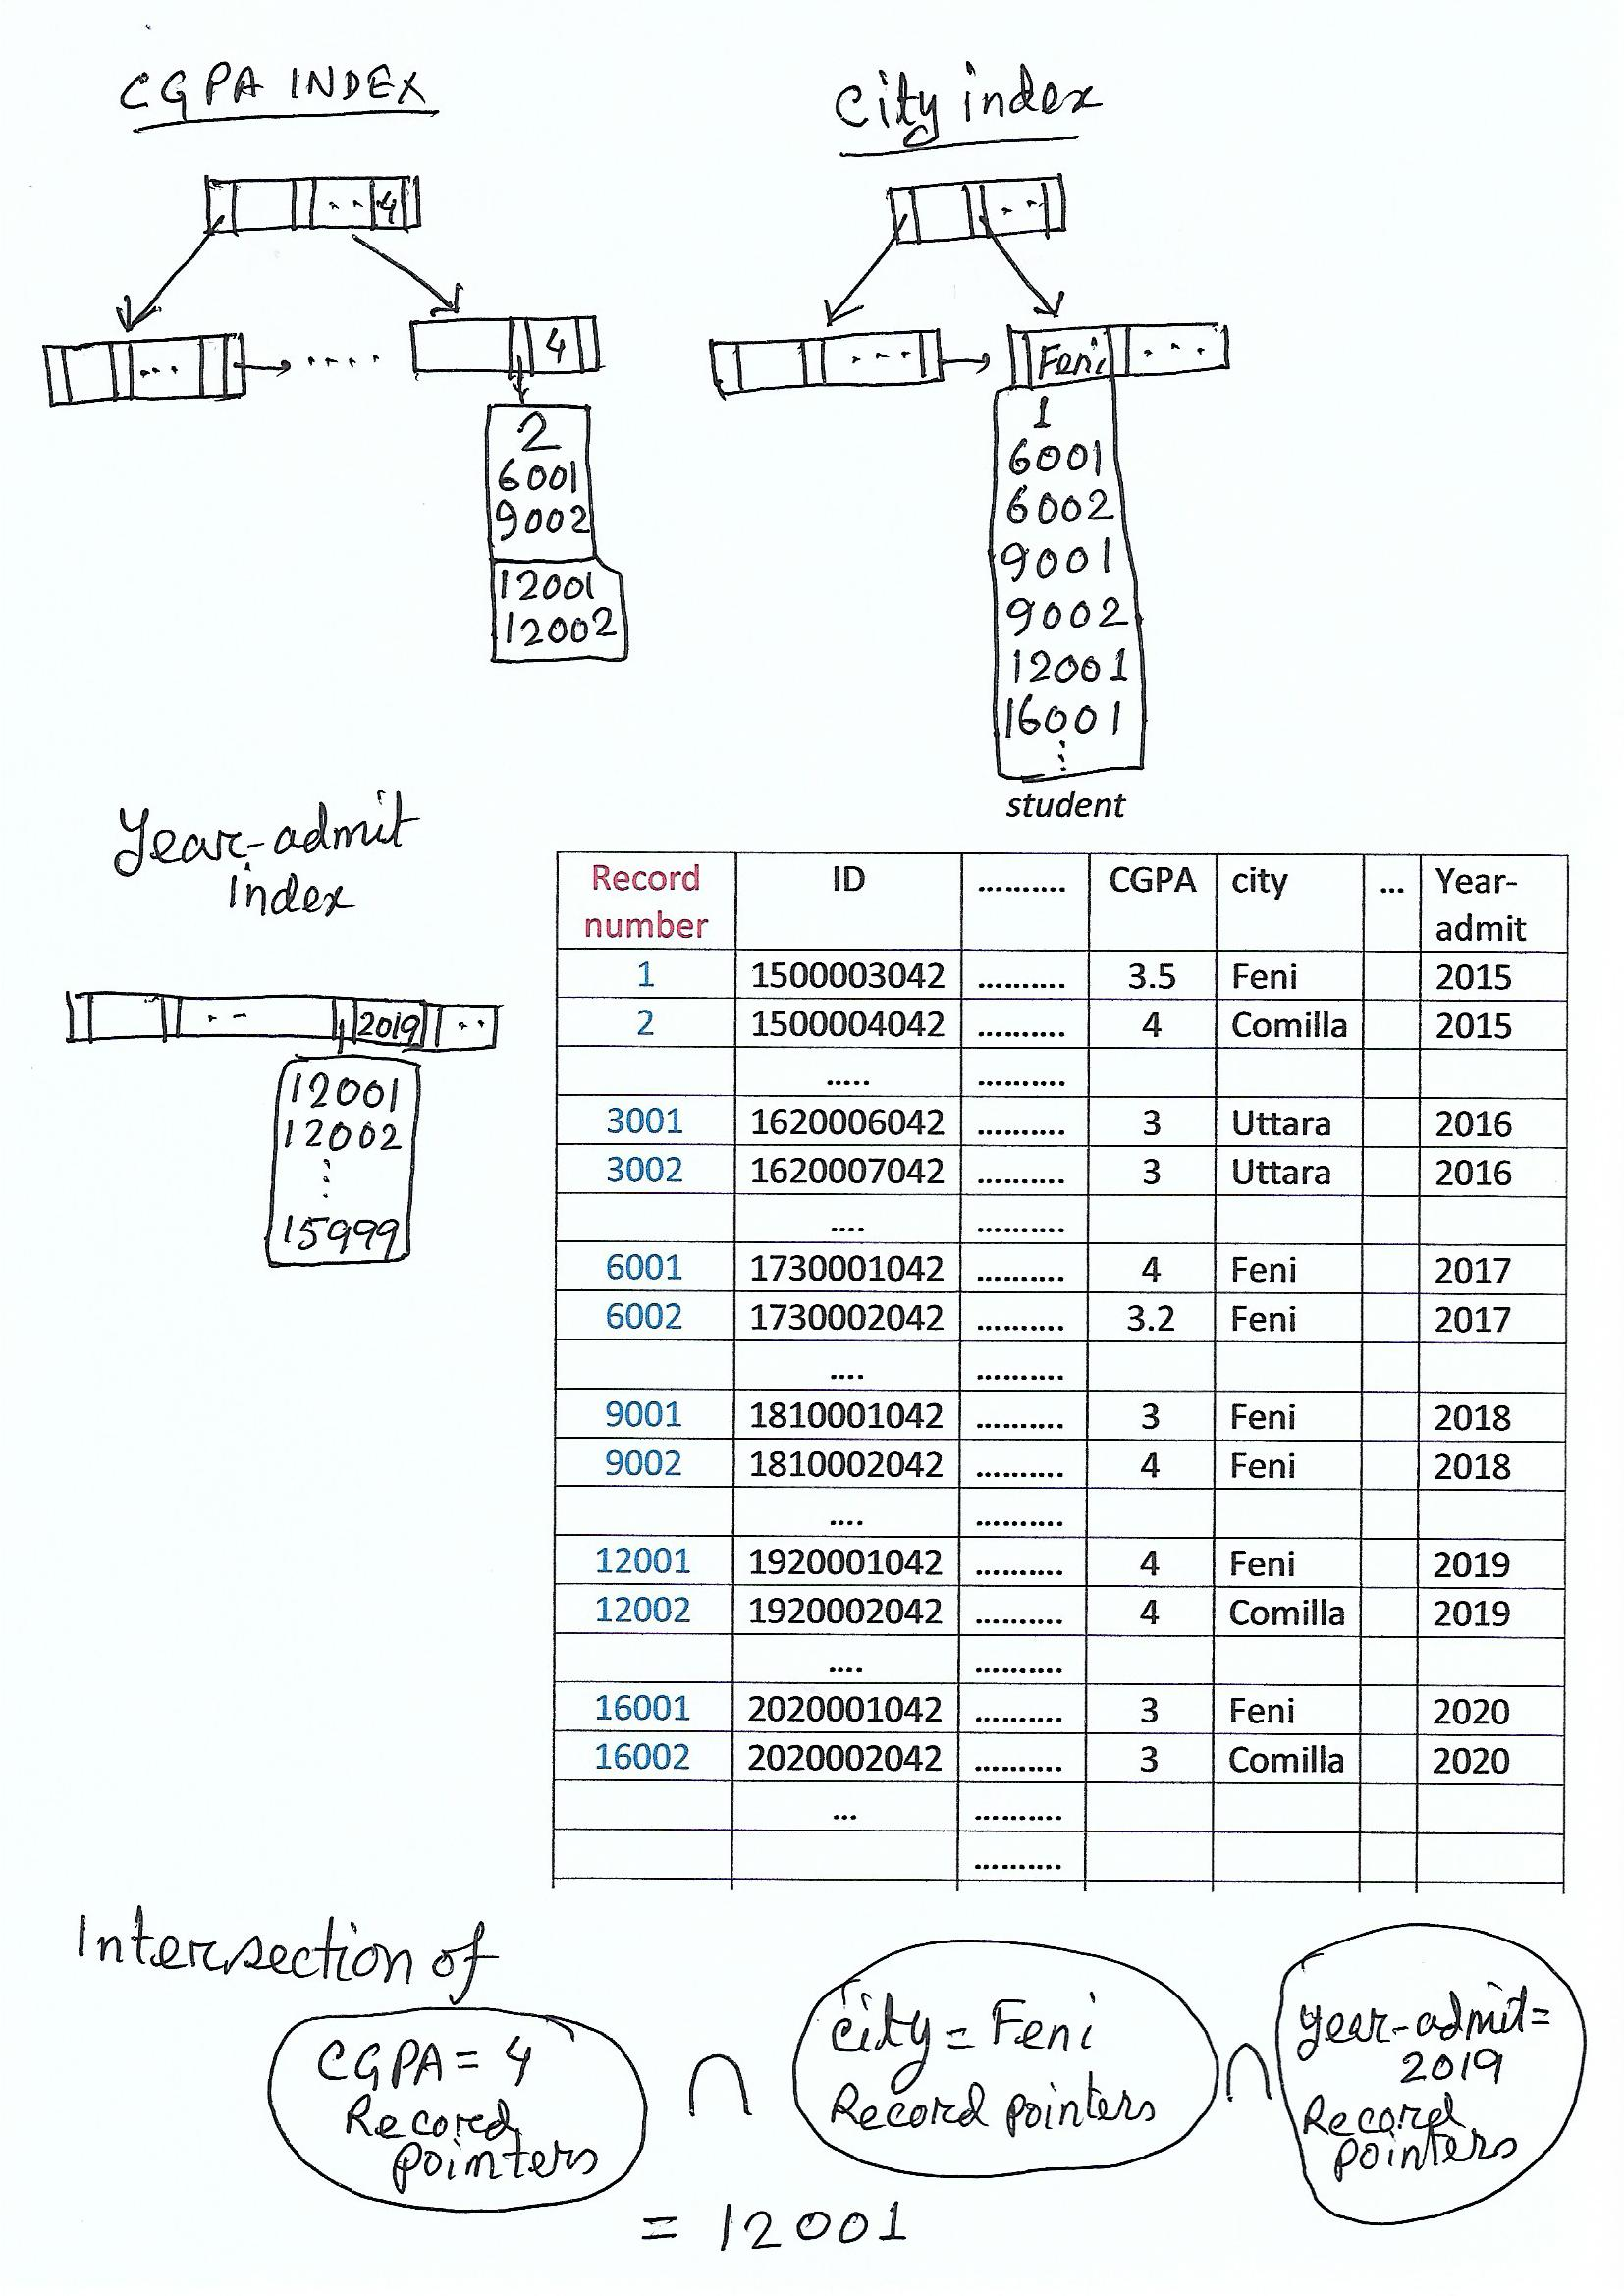 CGPA INDEX
City index
.. 4
..
... .... 4
... Feni ...
2
6001
9002
12001
12002
1
6001
6002
9001
9002
12001
16001
⋮
student
Year-admit
index
.. 2019 ..
12001
12002
⋮
15999
Record number ID .......... CGPA city ... Year-admit
1 1500003042 .......... 3.5 Feni 2015
2 1500004042 .......... 4 Comilla 2015
..... ..........
3001 1620006042 .......... 3 Uttara 2016
3002 1620007042 .......... 3 Uttara 2016
.... ..........
6001 1730001042 .......... 4 Feni 2017
6002 1730002042 .......... 3.2 Feni 2017
.... ..........
9001 1810001042 .......... 3 Feni 2018
9002 1810002042 .......... 4 Feni 2018
.... ..........
12001 1920001042 .......... 4 Feni 2019
12002 1920002042 .......... 4 Comilla 2019
.... ..........
16001 2020001042 .......... 3 Feni 2020
16002 2020002042 .......... 3 Comilla 2020
... ..........
..........
Intersection of
CGPA = 4
Record
pointers
∩
city = Feni
Record pointers
∩
year-admit =
2019
Record
pointers
= 12001